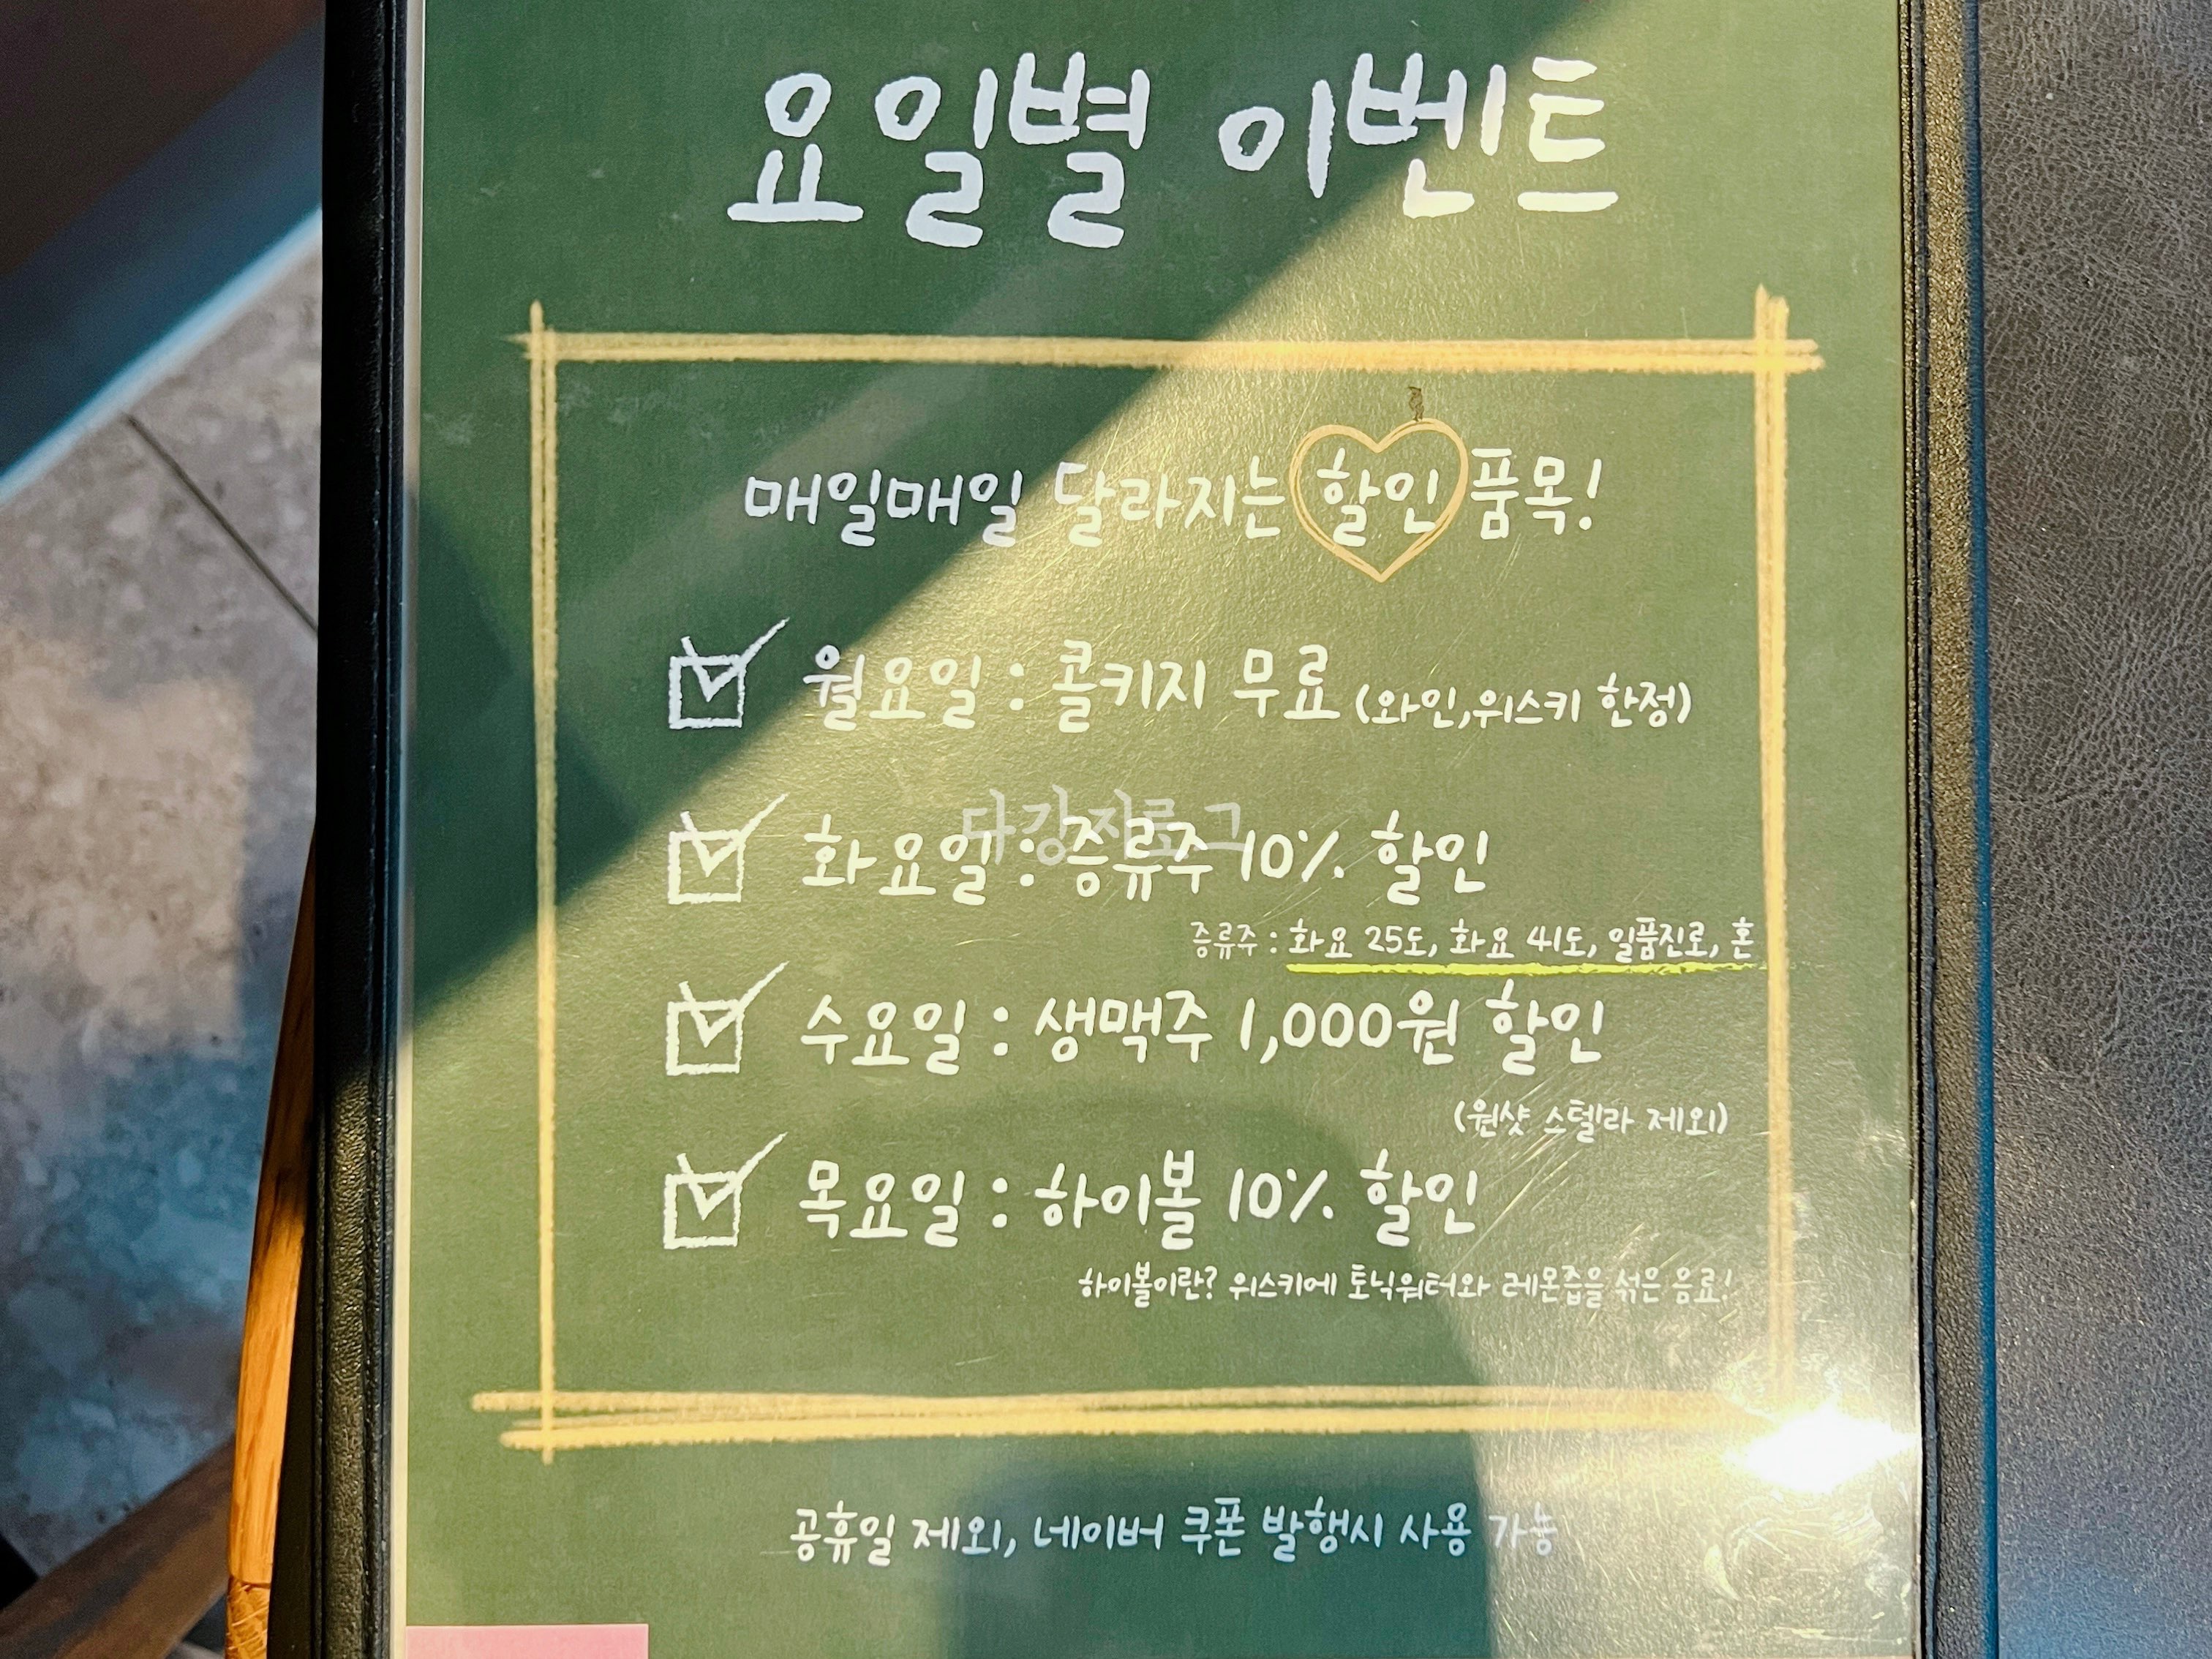 요일별 이벤트
매일매일 달라지는 할인 품목!
월요일 : 콜키지 무료 (와인,위스키 한정)
화요일 : 증류주 10% 할인
다강지로그
증류주 : 화요 25도, 화요 41도, 일품진로, 혼
수요일 : 생맥주 1,000원 할인
(원샷 스텔라 제외)
목요일 : 하이볼 10% 할인
하이볼이란? 위스키에 토닉워터와 레몬즙을 섞은 음료!
공휴일 제외, 네이버 쿠폰 발행시 사용 가능